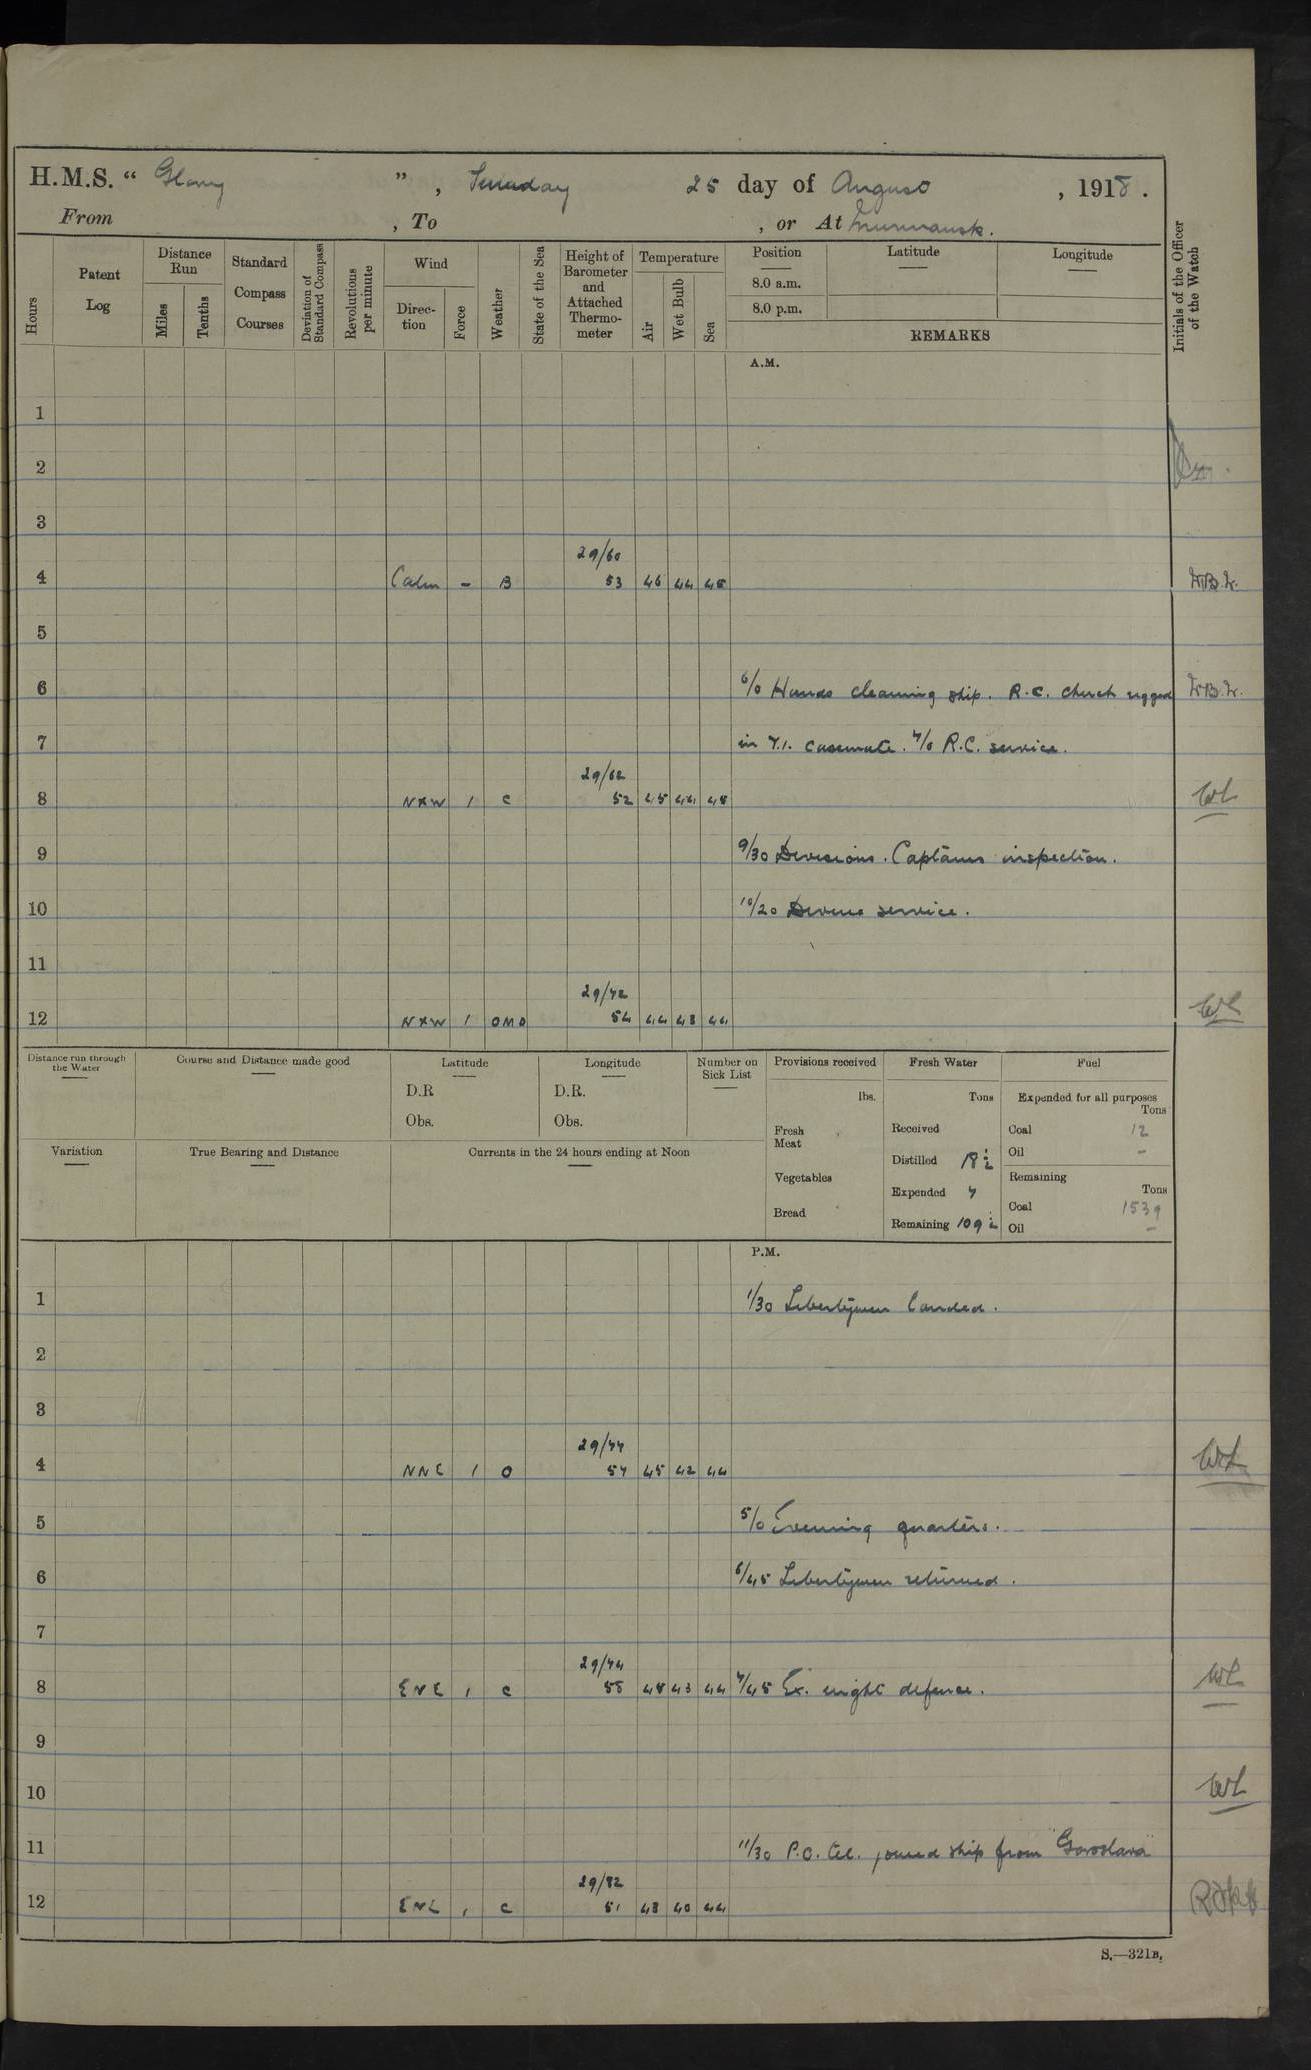 H.M.S. “ Glory ” , Sunday 25 day of August , 1918 .
From , To , or At Murmansk.
Hours
Patent Log
Distance Run
Miles
Tenths
Standard Compass Courses
Deviation of Standard Compass
Revolutions per minute
Wind
Direc- tion
Force
Weather
State of the Sea
Height of Barometer and Attached Thermo- meter
Temperature
Air
Wet Bulb
Sea
Position
8.0 a.m.
8.0 p.m.
Latitude
Longitude
REMARKS
Initials of the Officer of the Watch
A.M.
1
2
3
29/60
4 Calm - B 53 46 44 45
5
6 6/0 Hands cleaning ship. R.C. church rigged
7 in Y.1. casemate. 7/0 R.C. service.
29/62
8 NXW 1 C 52 45 44 45 WL
9 9/30 Divisions. Captains inspection.
10 10/20 Divine service.
11
29/72
12 NXW 1 OMD 54 44 43 44 WL
Distance run through the Water
Course and Distance made good
Latitude
D.R
Obs.
Longitude
D.R.
Obs.
Number on Sick List
Provisions received
lbs.
Fresh Meat
Vegetables
Bread
Fresh Water
Tons
Received
Distilled 18½
Expended 7
Remaining 109½
Fuel
Expended for all purposes
Tons
Coal 12
Oil -
Remaining
Tons
Coal 1539
Oil -
Variation
True Bearing and Distance
Currents in the 24 hours ending at Noon
P.M.
1 1/30 Libertymen landed.
2
3
29/77
4 NNE 1 O 57 45 42 44 WL
5 5/0 Evening quarters.
6 6/45 Libertymen returned.
7
29/74
8 ENE 1 C 55 45 43 44 7/45 Ex. night defence. WL
9
10 WL
11 11/30 P.O. Tel. joined ship from "Goroslava"
29/82
12 ENE 1 C 51 43 40 44
S.—321B.